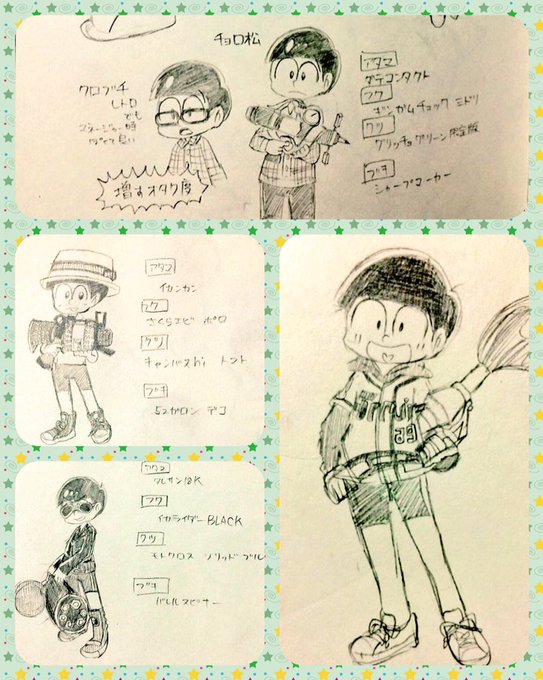 チョロ松
クロブチ
レトロ
でも
増すオタク度
アタマ
ダテコンタクト
フク
ギンガムチェック ミドリ
クツ
クリッチョグリーン限定版
ブキ
シャープマーカー
アタマ
イカンカン
フク
さくらエビ ポロ
クツ
キャンバスHi トマト
ブキ
52ガロン デコ
アタマ
フク
イカライダーBLACK
クツ
モトクロス ソリッドブルー
ブキ
バレルスピナー
29